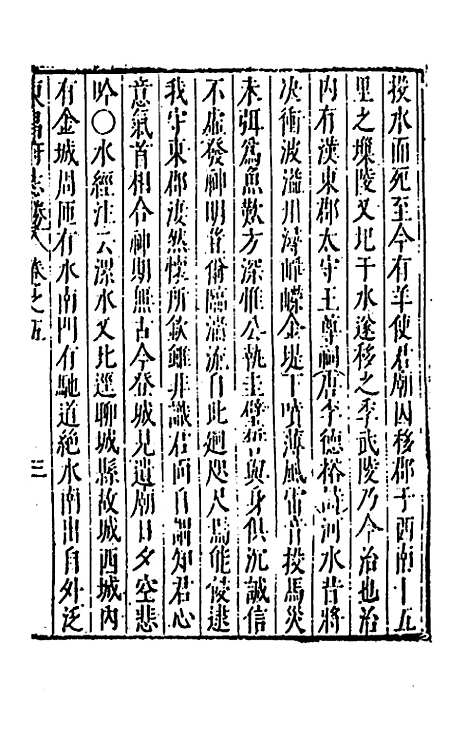 投水而死至今有羊使君廟因移郡于西南十五
里之巢陵又圯于水遂移之孝武陵乃今治也治
内有漢東郡太守王尊祠唐李德裕詩河水昔將
决衝波溢川潯崢嶸金堤下噴薄風雷音投馬災
未弭為魚歎方深惟公執圭璧誓與身俱沉誠信
不虛發神明宜爾臨湍流自此廻咫尺焉能侵逮
我守東郡凄然懷所欽雖非識君面自謂知君心
意氣首相合神期無古今登城見遺廟日夕空悲
吟○水經注云漯水又北逕聊城縣故城西城内
有金城周匝有水南門有馳道絶水南出自外泛
東昌府志 卷之五 三